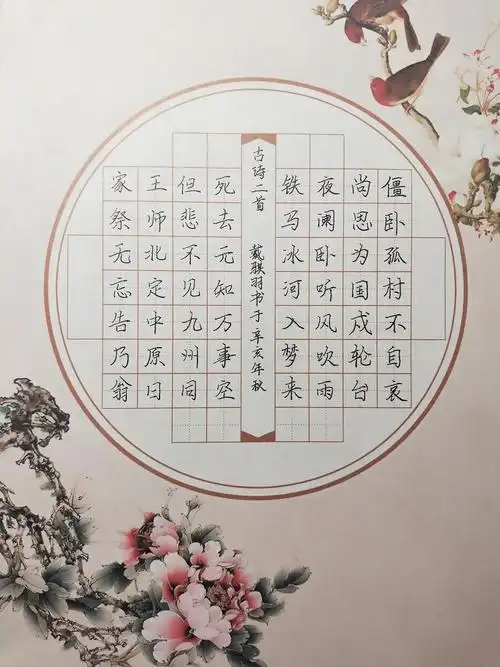 僵卧孤村不自哀
尚思为国戍轮台
夜阑卧听风吹雨
铁马冰河入梦来
古诗二首 戴骐羽书于辛亥年秋
死去元知万事空
但悲不见九州同
王师北定中原日
家祭无忘告乃翁